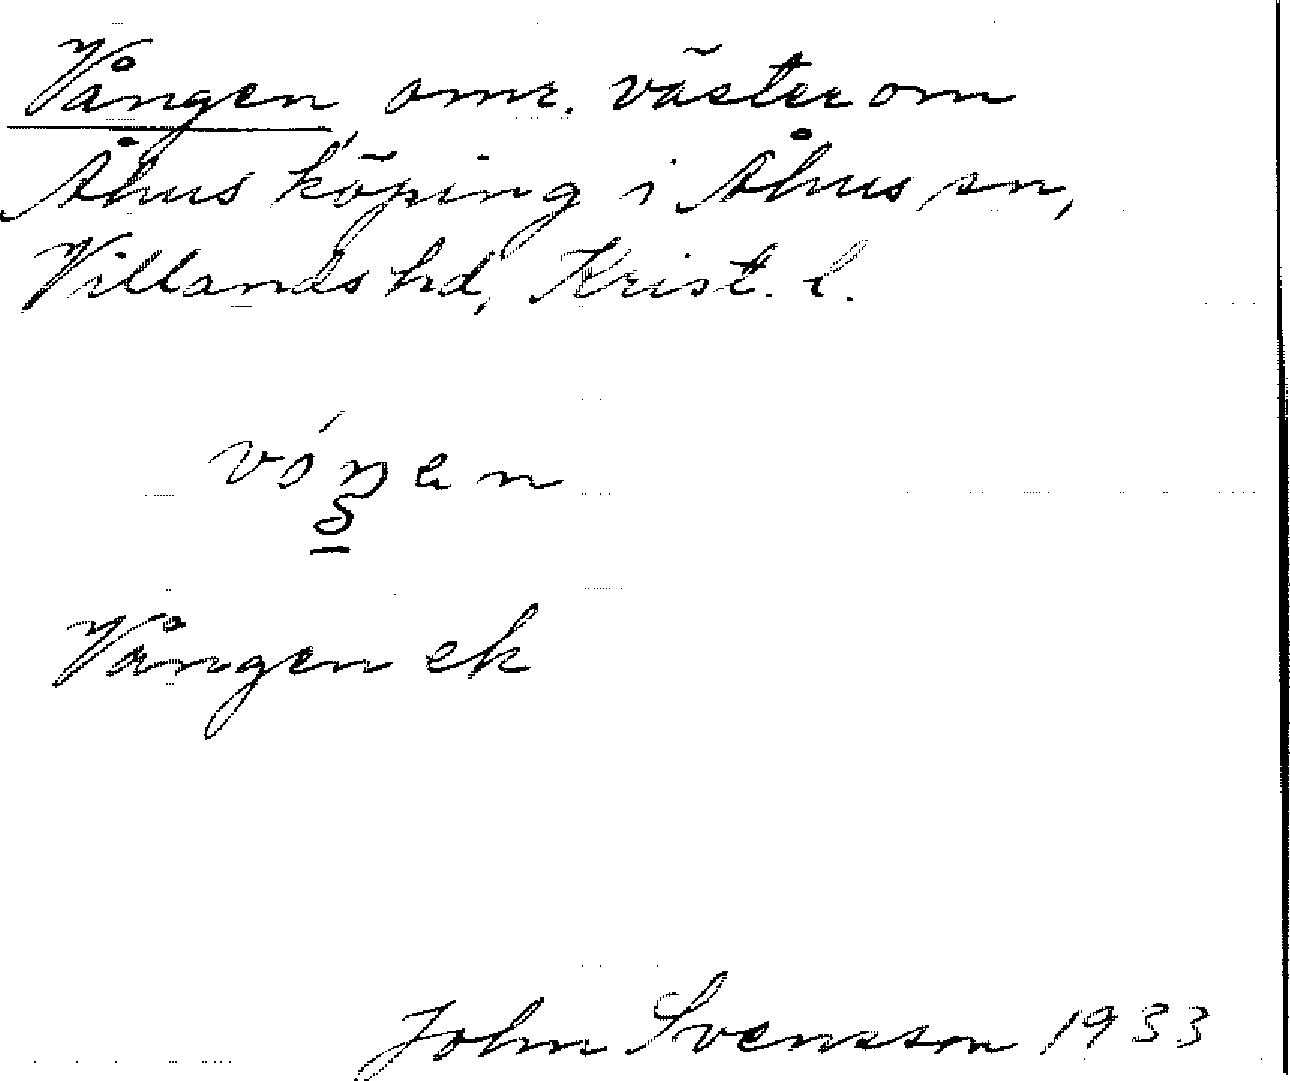 Vången, omr. väster om
Åhus köping i Åhus sn,
Villands hd, Krist. l.
vóŋen
Vången ek
John Svensson 1933